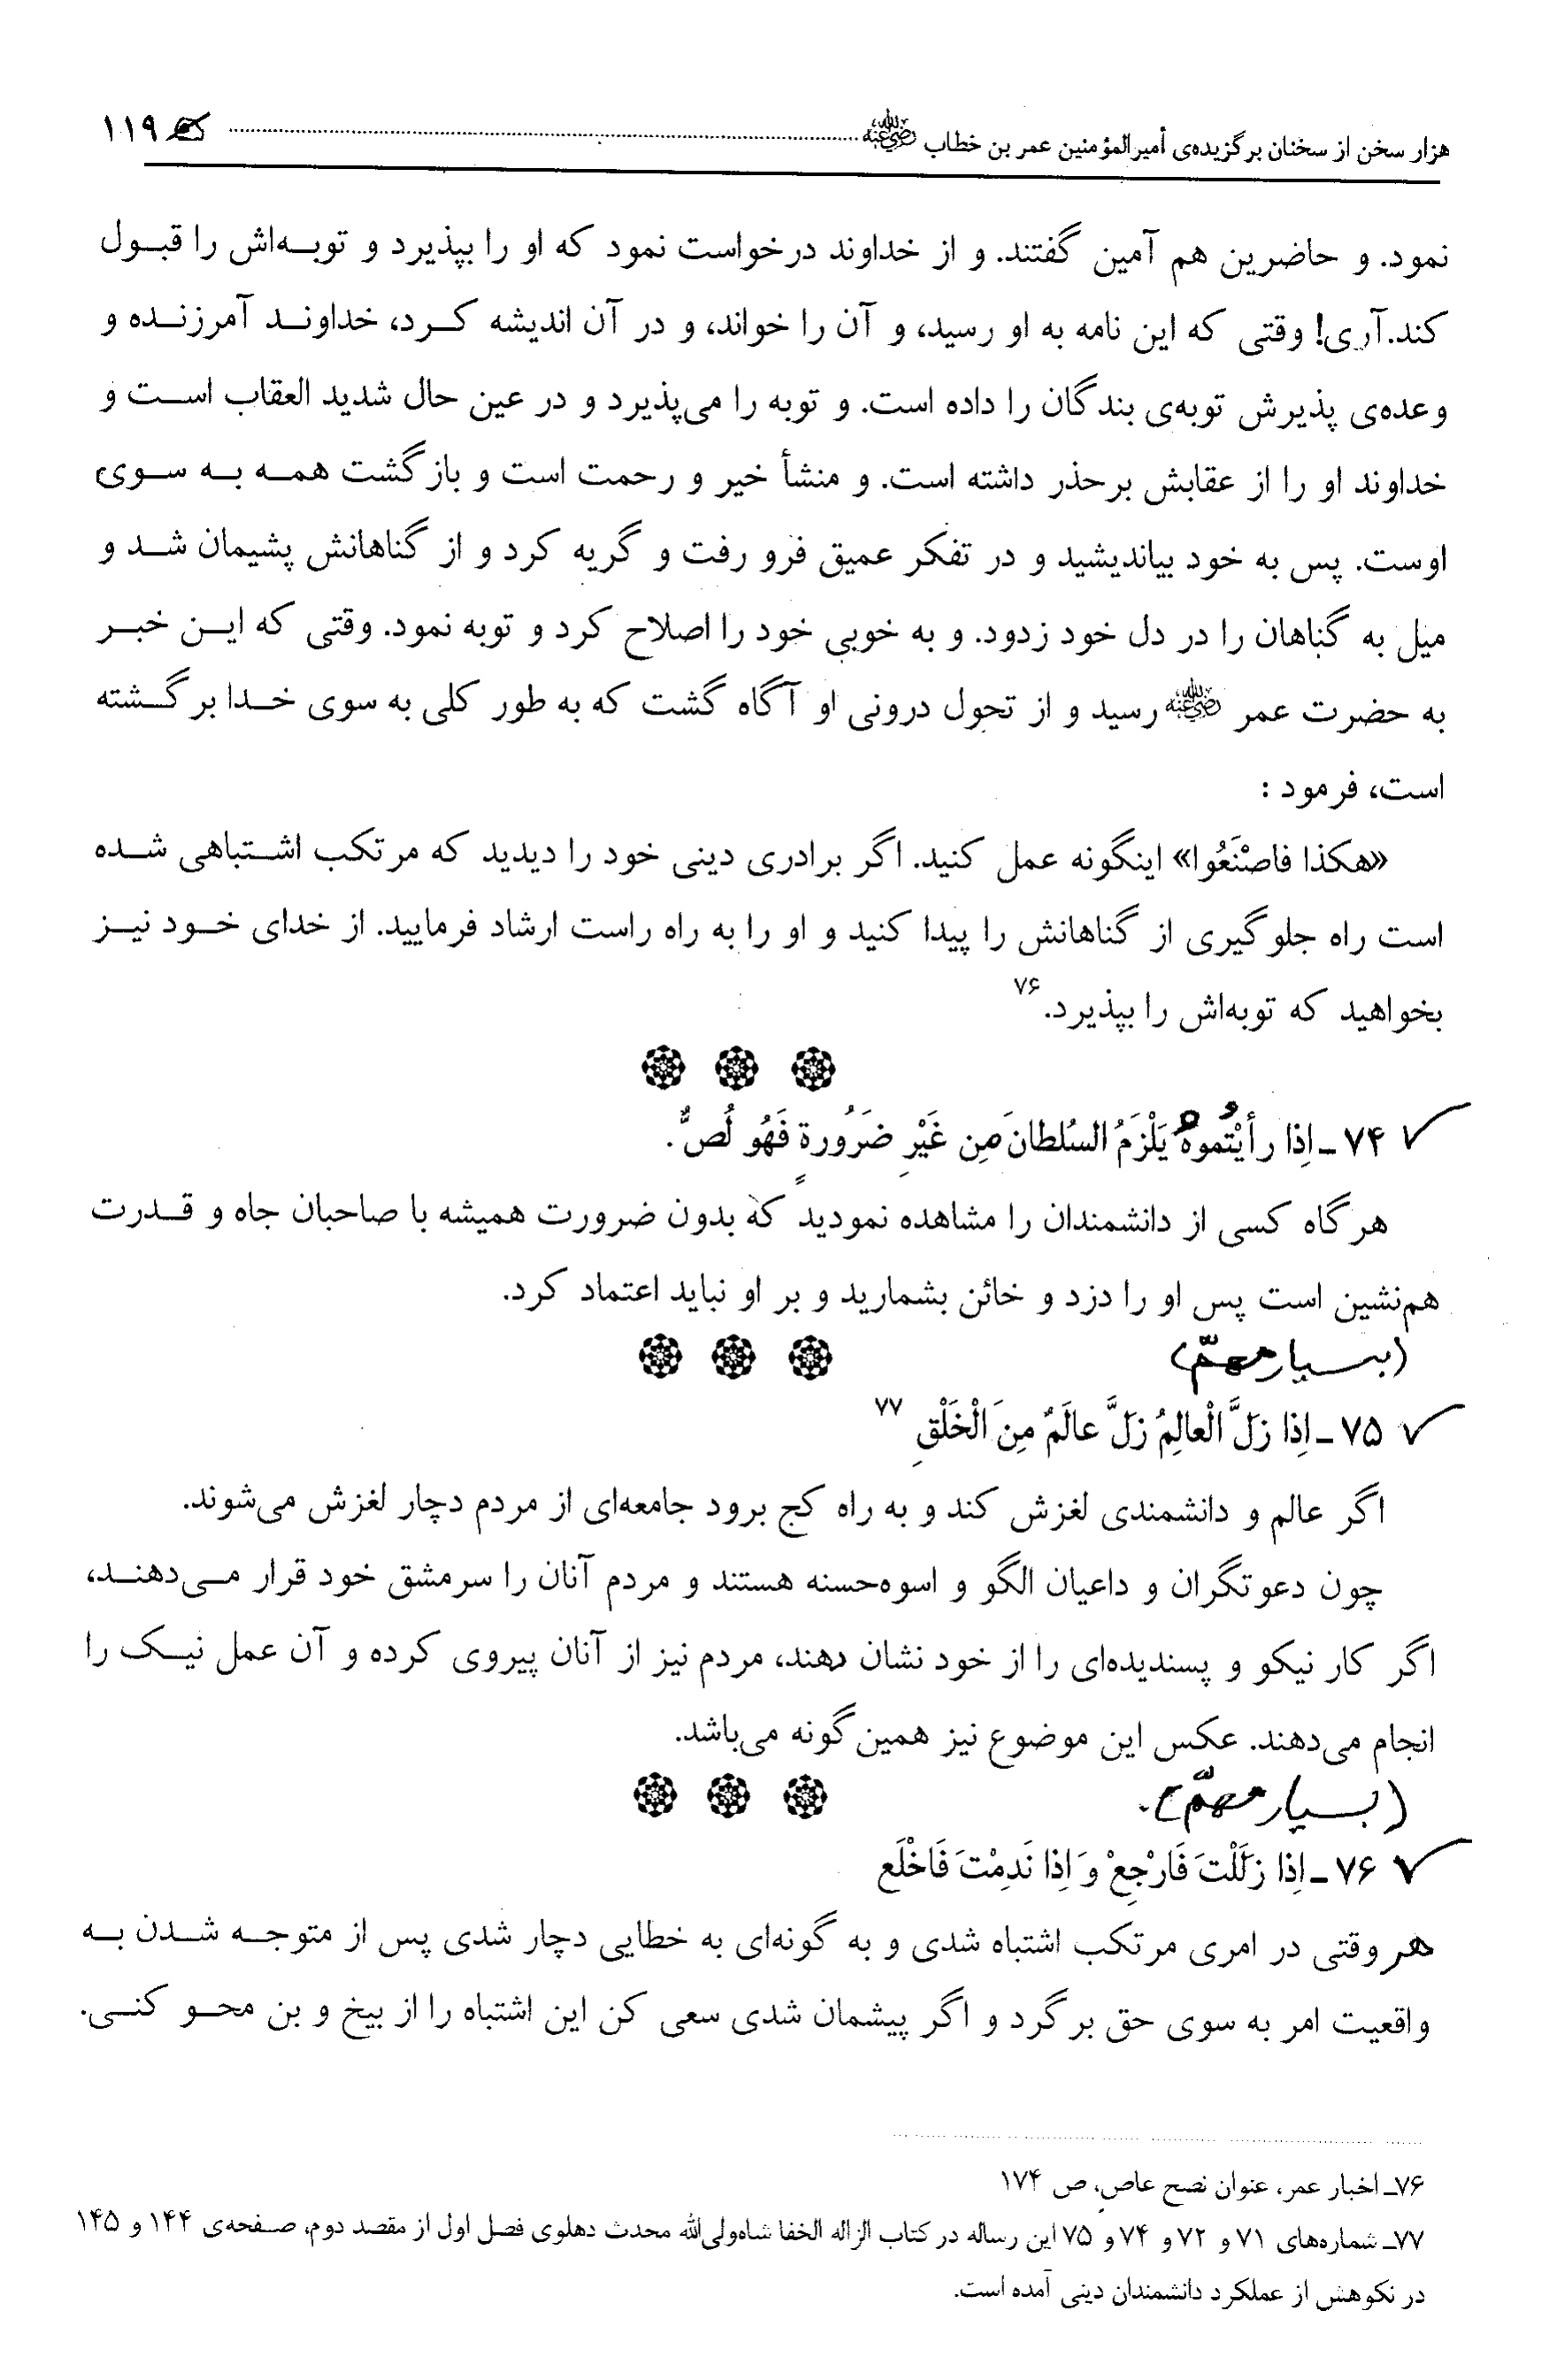 هزار سخن از سخنان برگزیده‌ی أمیرالمؤمنین عمر بن خطاب رضی الله عنه ۱۱۹
نمود. و حاضرین هم آمین گفتند. و از خداوند درخواست نمود که او را بپذیرد و توبه‌اش را قبول
کند.آری! وقتی که این نامه به او رسید، و آن را خواند، و در آن اندیشه کرد، خداوند آمرزنده و
وعده‌ی پذیرش توبه‌ی بندگان را داده است. و توبه را می‌پذیرد و در عین حال شدید العقاب است و
خداوند او را از عقابش برحذر داشته است. و منشأ خیر و رحمت است و بازگشت همه به سوی
اوست. پس به خود بیاندیشید و در تفکر عمیق فرو رفت و گریه کرد و از گناهانش پشیمان شد و
میل به گناهان را در دل خود زدود. و به خوبی خود را اصلاح کرد و توبه نمود. وقتی که این خبر
به حضرت عمر رضی الله عنه رسید و از تحول درونی او آگاه گشت که به طور کلی به سوی خدا برگشته
است، فرمود :
«هکذا فاصْنَعُوا» اینگونه عمل کنید. اگر برادری دینی خود را دیدید که مرتکب اشتباهی شده
است راه جلوگیری از گناهانش را پیدا کنید و او را به راه راست ارشاد فرمایید. از خدای خود نیز
بخواهید که توبه‌اش را بپذیرد.۷۶
۷۴ـ اِذا رأیْتُموهُ یَلْزَمُ السُلطانَ مِن غَیْرِ ضَرُورةٍ فَهُو لُصٌّ.
هرگاه کسی از دانشمندان را مشاهده نمودید که بدون ضرورت همیشه با صاحبان جاه و قدرت
هم‌نشین است پس او را دزد و خائن بشمارید و بر او نباید اعتماد کرد.
(بسیار مهمّ)
۷۵ـ اِذا زَلَّ الْعالِمُ زَلَّ عالَمٌ مِنَ الْخَلْقِ ۷۷
اگر عالم و دانشمندی لغزش کند و به راه کج برود جامعه‌ای از مردم دچار لغزش می‌شوند.
چون دعوتگران و داعیان الگو و اسوه‌حسنه هستند و مردم آنان را سرمشق خود قرار می‌دهند،
اگر کار نیکو و پسندیده‌ای را از خود نشان دهند، مردم نیز از آنان پیروی کرده و آن عمل نیک را
انجام می‌دهند. عکس این موضوع نیز همین‌گونه می‌باشد.
(بسیار مهمّ).
۷۶ـ اِذا زَلَلْتَ فَارْجِعْ وَ اِذا نَدِمْتَ فَاخْلَع
هر وقتی در امری مرتکب اشتباه شدی و به گونه‌ای به خطایی دچار شدی پس از متوجه شدن به
واقعیت امر به سوی حق برگرد و اگر پیشمان شدی سعی کن این اشتباه را از بیخ و بن محو کنی.
۷۶ـ اخبار عمر، عنوان نصح عاص، ص ۱۷۴
۷۷ـ شماره‌های ۷۱ و ۷۲ و ۷۴ و ۷۵ این رساله در کتاب الزاله الخفا شاه‌ولی‌الله محدث دهلوی فصل اول از مقصد دوم، صفحه‌ی ۱۴۴ و ۱۴۵
در نکوهش از عملکرد دانشمندان دینی آمده است.